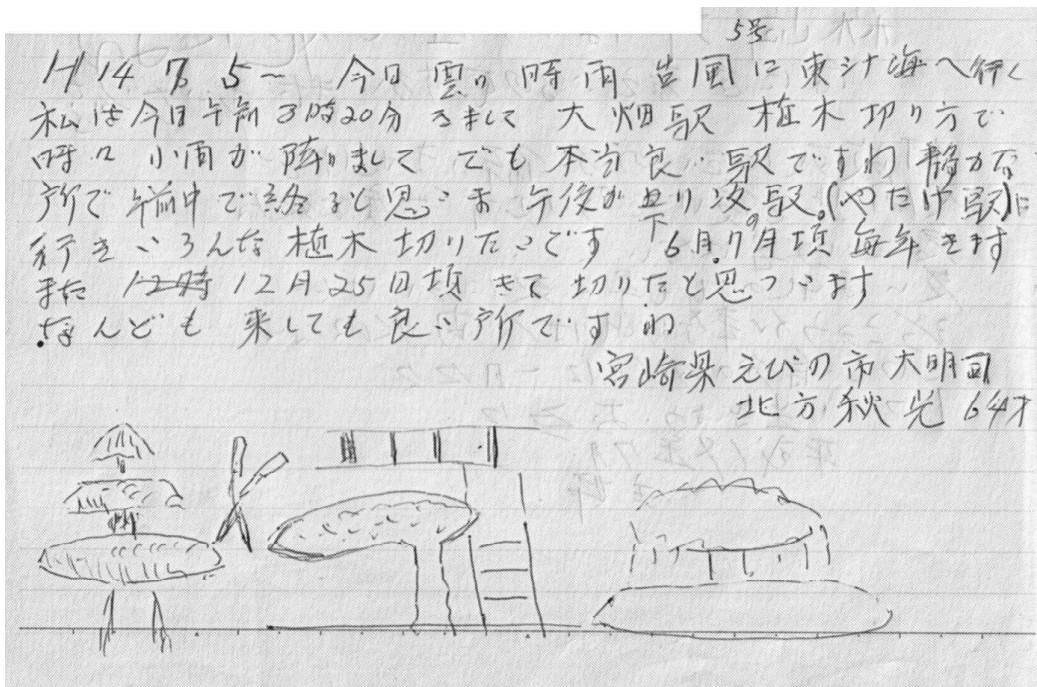 5号
H14 7 5〜 今日 雲り 時雨 台風に 東シナ海へ行く
私は今日午前8時20分 きまして 大畑駅 植木切り方で
時々 小雨が 降りまして でも 本当良い駅ですわ 静かな
所で 午前中で終ると思いま 午後から 次の駅(やたけ駅)に
行き いろんな 植木切りたいです 6月.7月頃 毎年きます
また 12時 12月25日頃 きて 切りたと思っています
なんども 来しても良い所ですわ
宮崎県えびの市大明司
北方秋光 64才